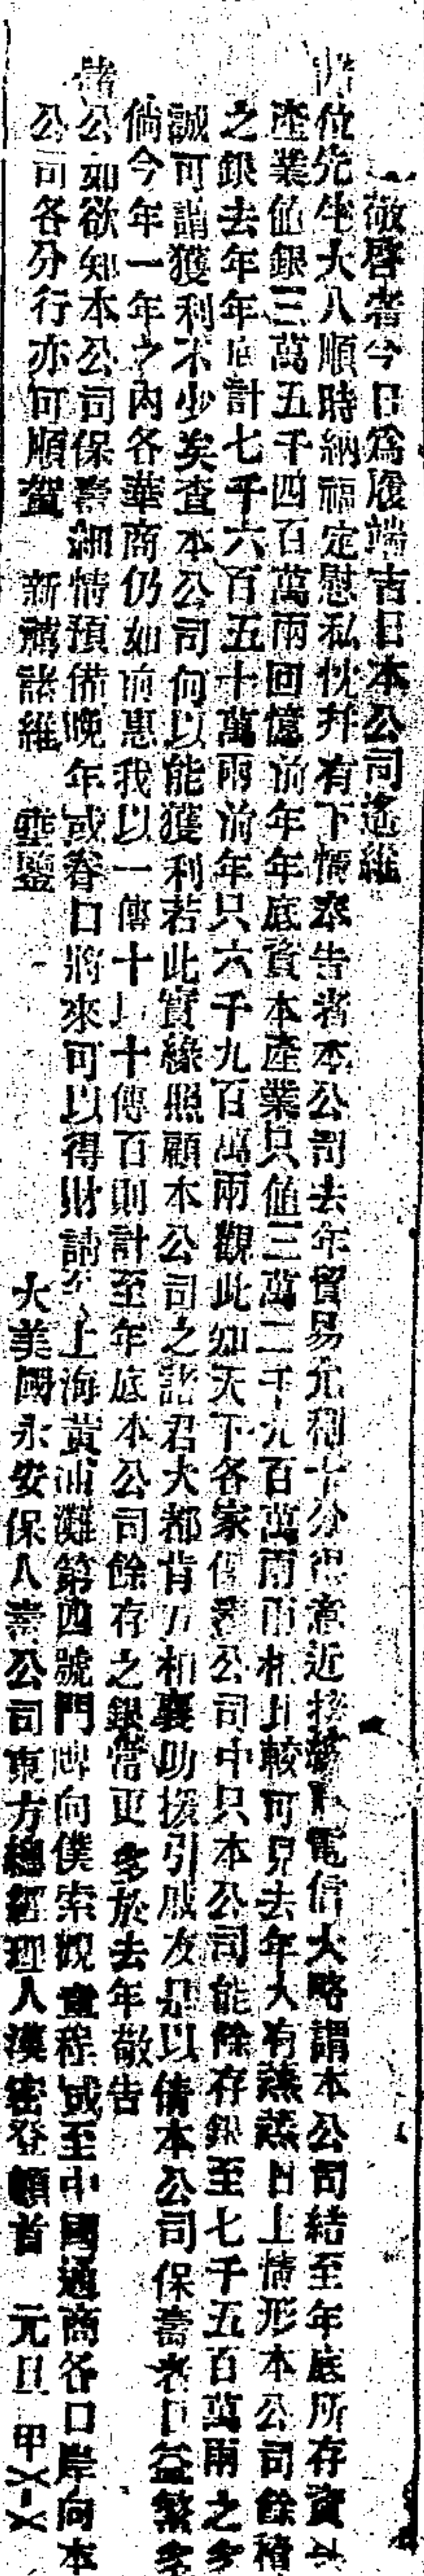 敬啓者今日為履端吉日本公司遙維
諸位先生大人順時納福定慰私忱幷有下情奉告者本公司去年貿易允利十分得意近接電信大略謂本公司結至年底所存資
產業值銀三萬五千四百萬兩回憶前年年底資本產業只值三萬二千九百萬兩兩相比較可見去年大有蒸蒸日上情形本公司餘積
之銀去年年底計七千六百五十萬兩前年只六千九百萬兩觀此知天下各家保壽公司中只本公司能餘存銀至七千五百萬兩之多
誠可謂獲利不少矣查本公司何以能獲利若此實緣照顧本公司之諸君大都肯互相襄助援引戚友是以倩本公司保壽者日益繁多
倘今年一年之內各華商仍如前惠我以一傳十以十傳百則計至年底本公司餘存之銀當更多於去年敬告
諸公如欲知本公司保壽細情預備晚年或春日將來可以得財請至上海黃浦灘第四號門牌向僕索觀章程或至中國通商各口岸向本
公司各分行亦可順賀 新禧諸維 垂鑒 大美國永安保人壽公司東方總經理人漢密登頓首 元旦 甲